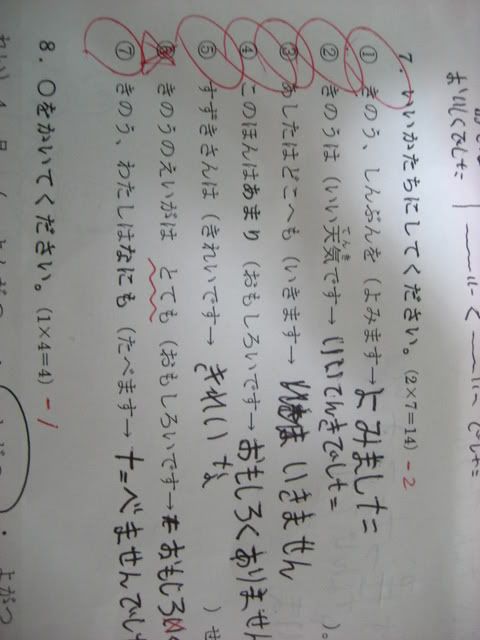 おいしくてした
7. いいかたちにしてください。(2×7=14) -2
① きのう、しんぶんを (よみます→ よみました
② きのうは (いい天気です→ いいてんきでした )。
てんき
③ あしたはどこへも (いきます→ いきません
④ このほんはあまり (おもしろいです→ おもしろくありません
⑤ すずきさんは (きれいです→ きれい な ) せ
⑥ きのうのえいがは とても (おもしろいです→ おもしろ
⑦ きのう、わたしはなにも (たべます→ たべませんでし
8. ○をかいてください。(1×4=4) -1